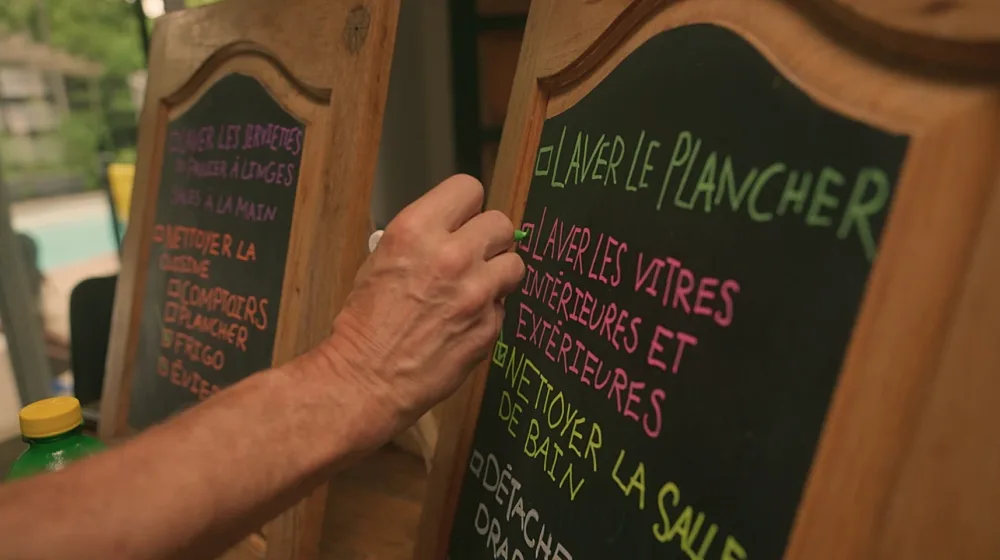 LAVER LES SERVIETTES
PANIER À LINGES
SALES À LA MAIN
NETTOYER LA
CUISINE
COMPTOIRS
PLANCHER
FRIGO
ÉVIER
LAVER LE PLANCHER
LAVER LES VITRES
INTÉRIEURES ET
EXTÉRIEURES
NETTOYER LA SALLE
DE BAIN
DÉTACHE
DRA